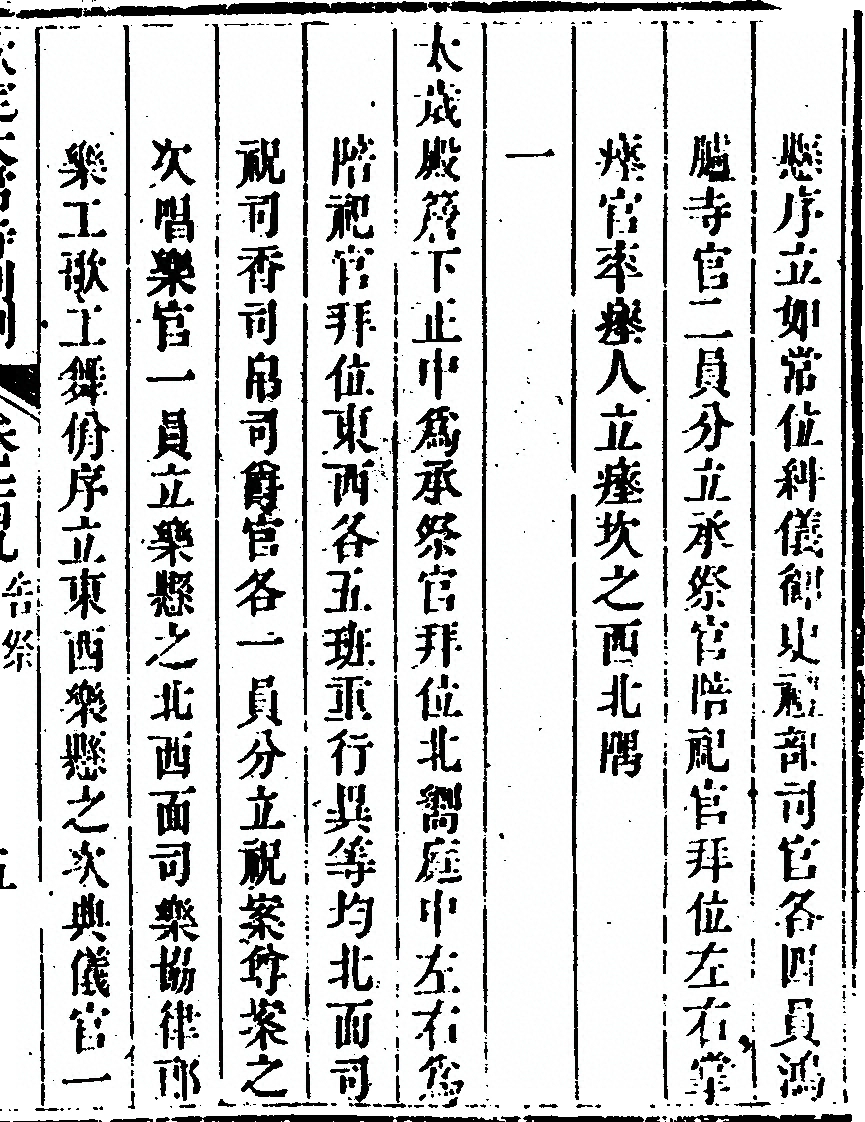 懸序立如常位糾儀御史禮部司官各四員鴻
臚寺官二員分立承祭官陪祀官拜位左右掌
瘞官率瘞人立瘞坎之西北隅
一
太歲殿簷下正中爲承祭官拜位北嚮庭中左右爲
陪祀官拜位東西各五班重行異等均北面司
祝司香司帛司爵官各一員分立祝案尊案之
次唱樂官一員立樂懸之北西面司樂協律郎
樂工歌工舞佾序立東西樂懸之次典儀官一
告祭
五